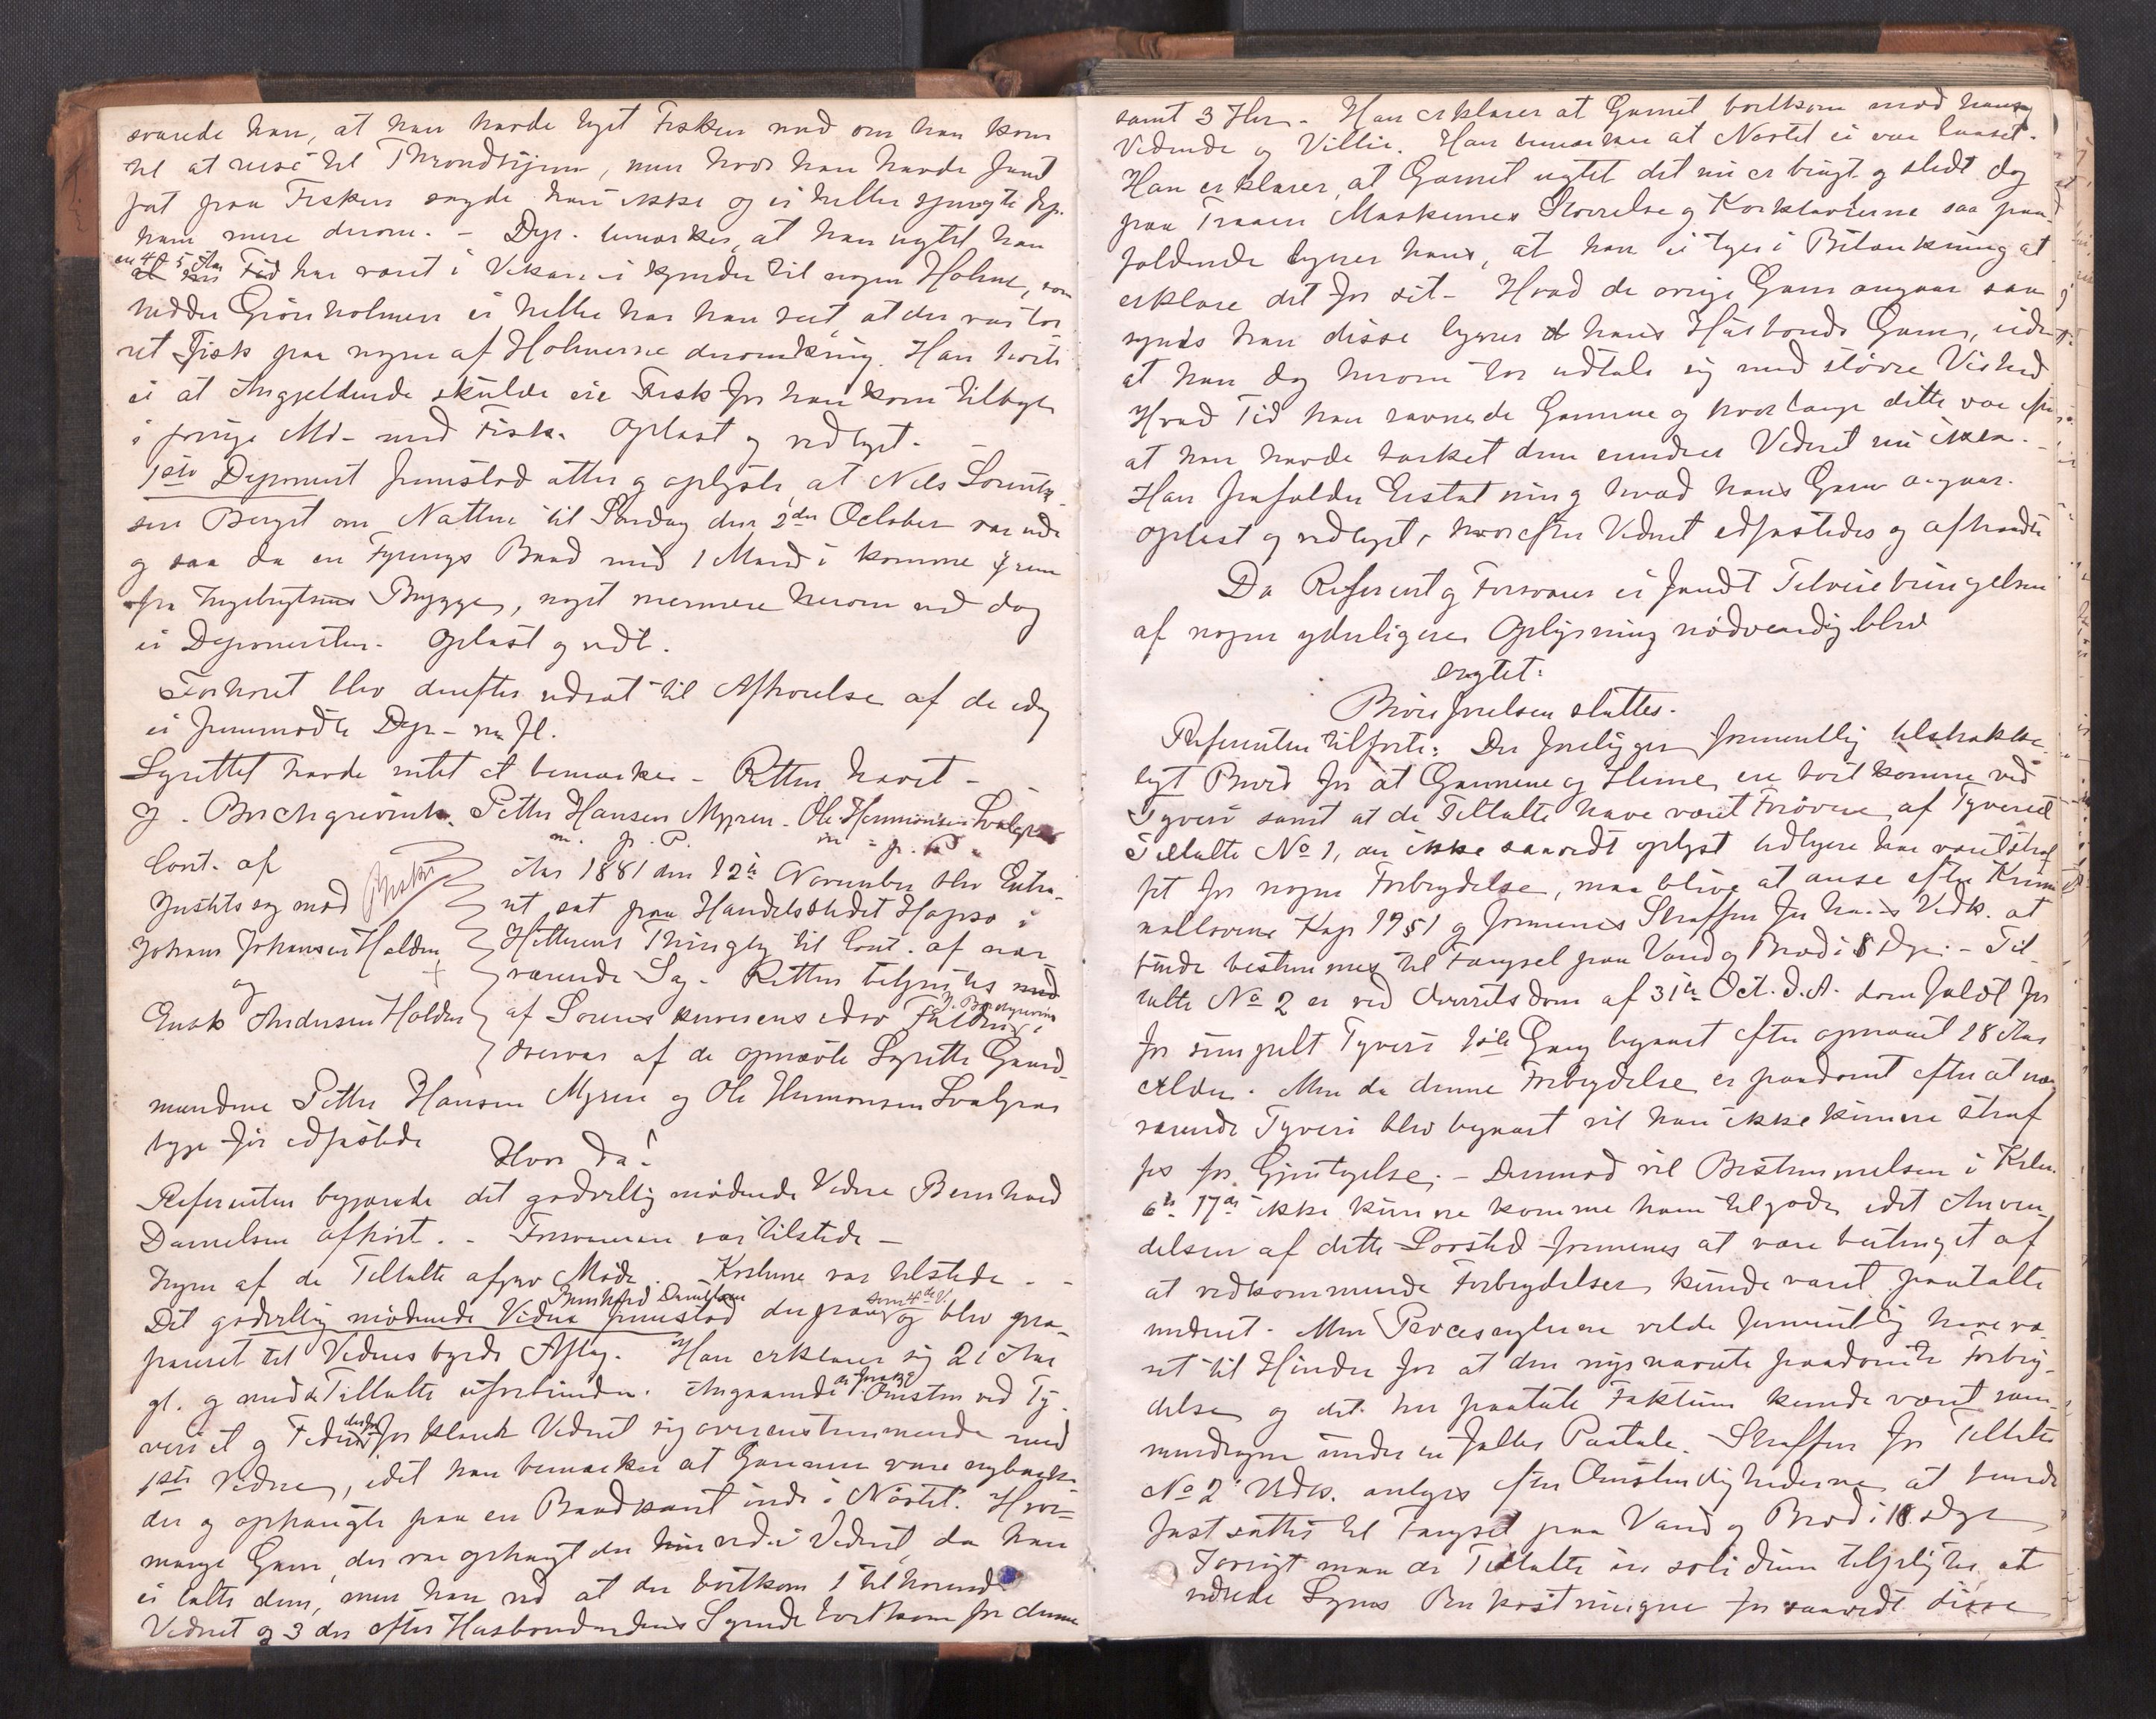 svarede han, at han havde lyst Fisken med om han kom
til at reise til Throndhjem, men hvor han havde faaet
fat paa Fisken sagde han ikke og ei heller spurgte Dep.
ham mere derom. - Dep. bemærker, at han uagtet han
en 4 a 5 Aar har været i Viken ei kjender til nogen Holme, som
hedder Grønholmen ei heller har han seet, at der var tør
ret Fisk paa nogen af Holmerne deromkring. Han hørte
ei at Angjeldende skulde eie Fisk før han kom tilbage
i forrige Md. med Fisk. Oplæst og vedtaget. -
1ste Deponent fremstod atter og oplyste, at Nils Lorents
sen Berget om Natten til Søndag den 2den October var ude
og saa da en Færings Baad med 1 Mand i komme frem
fra Brygge, noget nærmere herom ved dog
ei Deponenten. Oplæst og vedt.
Forhøret blev derefter udsat til Afhørelse af de idag
ei fremmødte Dep. m. fl.
Lagrettet havde intet at bemærke - Retten hævet -
J. Borchgrevink. Petter Hansen Myren. Ole Hermansen
m. p. P. m. p. P.
Cont. af
Justitssag mod
Johan Johansen Holden
og
Enok Andersen Holden
Aar 1881 den 12te November blev Extra-
ret sat paa Handelsstedet Hopsø i
Hitterens Thinglag til Cont. af nær-
værende Sag. Retten betjentes
af Sorenskriverens edsv. Fuldm. J. Borchgrevink i
Overvær af de opnævnte Lagrette Gaard-
mændene Petter Hansen Myren og Ole Hermansen
begge før edfæstede
Hvor da!
Referenten begjærede det godvillig mødende Vidne Bernhard
Danielsen afhørt. - Forsvareren var tilstede -
Ingen af de Tiltalte afgav Møde. - Kosterne var tilstede - -
Det godvillig mødende Vidne Bernhard Danielsen fremstod derpaa som 4de V. og blev fra-
manet til Vidnesbyrds Aflæg. Han erklærer sig 21 Aar
gl. og med de Tiltalte uforbunden. Angaaende de frast. Omst. ved Ty-
veriet og Tiden derfor forklarer Vidnet sig overensstemmende med
1ste Vidne, idet han bemærker at Garnene vare nybark-
der og ophængte paa en Baadkant inde i Nøstet. Hvor-
mange Garn der var ophængt der inde ved ei Vidnet da han
ei talte dem, men han ved at der bortkom 1 tilhørende
Vidnet og 3 der efter Husbondendens Sigende bortkom for denne
samt 3 Iler. - Han erklærer at Garnet bortkom mod hans
Vidende og Villie. Han bemærker at Nøstet ei var laaset.
Han erklærer, at Garnet uagtet det nu er brugt og slidt dog
paa Traaen Maskernes Størrelse og Korklaverne saa paa-
faldende ligner hans, at han ei tager i Betænkning at
erklære det for sit - Hvad de øvrige Garn angaar saa
synes han disse ligner hans Husbonds Garn, uden
at han dog herom tør udtale sig med større Vished
Hvad Tid han savnede Garnene og hvor længe dette var efter
at han havde barket dem erindrer Vidnet nu ikke. -
Han frafalder Erstatning hvad hans Garn angaar.
Oplæst og vedtaget, hvorefter Vidnet edfæstedes og afhandt
Da Referent og Forsvarer ei fandt Tilveiebringelsen
af nogen yderligere Oplysning nødvendig blev
eragtet:
Bevisførelsen sluttes.
Referenten tilførte: Der foreligger formentlig tilstrække-
ligt Bevis for at Garnene og Ilerne ere bortkomne ved
Tyveri samt at de Tiltalte have været Prøvere af Tyveriet
Tiltalte No 1, der ikke saavidt oplyst tidligere har været straf
fet for nogen Forbrydelse, maa blive at anse efter Krimi
nallovens Kap 19 § 1 og formenes Straffen for hans Vedk. at
burde bestemmes til Fængsel paa Vand og Brød i 8 Dge. - Til-
talte No 2 er ved Overretsdom af 31te Oct. d. A. domfældt for
for simpelt Tyveri 1ste Gang begaaet efter opnaaet 18 Aars
Alder. Men da denne Forbrydelse er paadømt efter at nær-
værende Tyveri blev begaaet vil han ikke kunne straf
fes for Gjentagelse. - Derimod vil Bestemmelsen i Krlov.
6te 17de ikke kunne komme ham tilgode, idet Anven-
delsen af dette Lovsted formenes at være betinget af
at vedkommende Forbrydelser kunde været paatalte
under et. Men Procesreglerne vilde formentlig have væ-
ret til Hinder for at den nysnævnte paadømte Forbry-
delse og det her paatalte Faktum kunde været sam-
mendragne under en fælles Paatale. Straffen for Tiltalte
No 2 Vedk. antages efter Omstændighederne at burde
fastsættes til Fængsel paa Vand og Brød i 18 Dge
Forøvrigt maa de Tiltalte in solidum tilpligtes at
udrede Sagens Omkostninger for saavidt disse